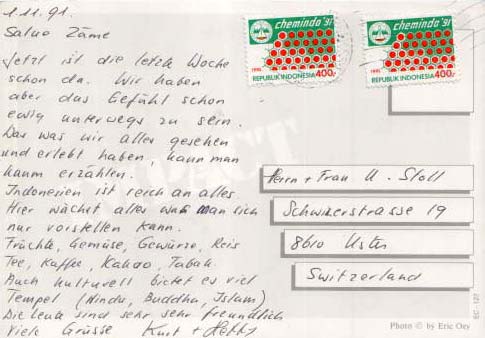 1.11.91.
Salue Zäme
Jetzt ist die letzte Woche
schon da. Wir haben
aber das Gefühl schon
ewig unterwegs zu sein.
Das was wir alles gesehen
und erlebt haben, kann man
kaum erzählen.
Indonesien ist reich an alles
Hier wächst alles was man sich
nur vorstellen kann.
Früchte, Gemüse, Gewürze, Reis
Tee, Kaffee, Kakao, Tabak.
Auch kulturell bietet es viel
Tempel (Hindu, Buddha, Islam)
Die Leute sind sehr sehr freundlich
Viele Grüsse Kurt + Hetty
cheminda '91
1991
REPUBLIK INDONESIA 400,-
cheminda '91
1991
REPUBLIK INDONESIA 400,-
Herrn + Frau U. Stoll
Schwizerstrasse 19
8610 Uster
Switzerland
EC - 122
Photo © by Eric Oey